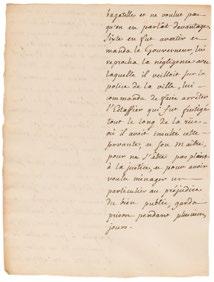 bagatelle et ne voulut pas
qu'on en parlât davantage
Sixte en fut averti et
manda le Gouverneur, lui
reprocha la négligence avec
laquelle il veilloit sur la
police de la ville, lui
commanda de faire arrêter
l'Estaffier qui fut fustigé
tout le long de la rue
où il avoit insulté cette
servante, et son Maître,
pour ne s'être pas plaint
à la justice, et pour avoir
voulu ménager un
particulier au préjudice
du bien public, garda
prison pendant plusieurs
jours.